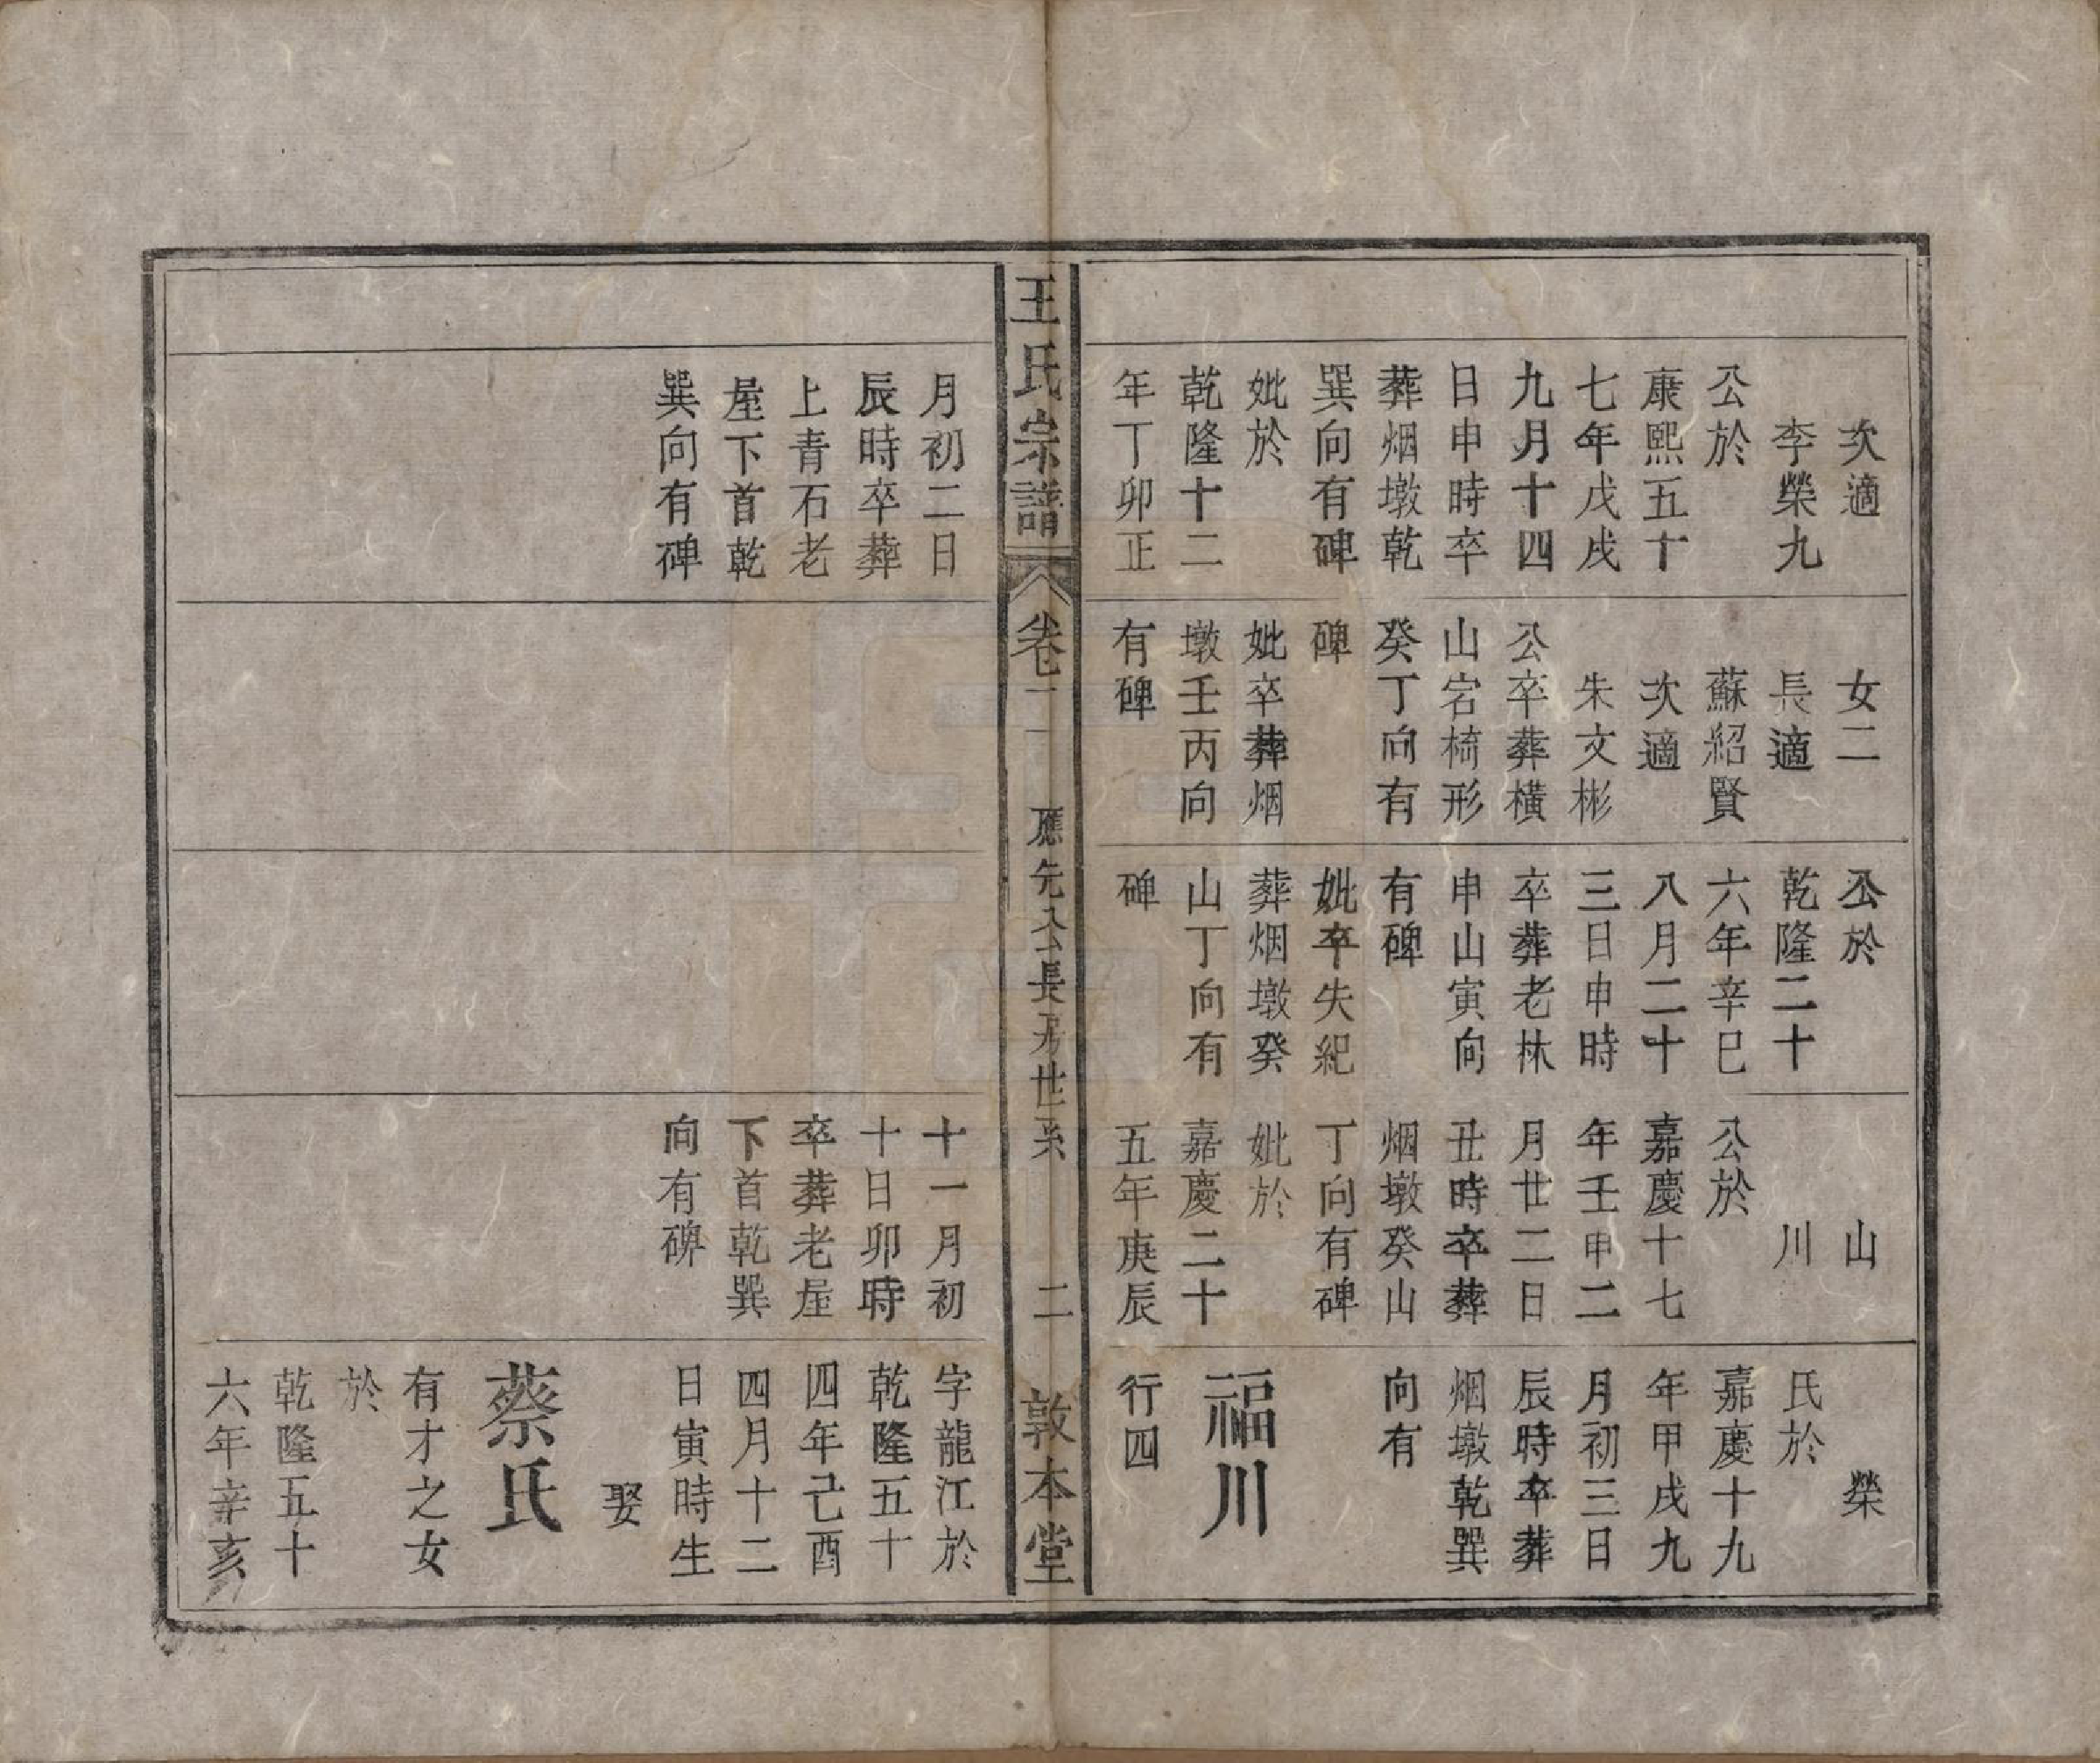 次適
李榮九
公於
康熙五十
七年戊戌
九月十四
日申時卒
葬烟墩乾
巽向有碑
妣於
乾隆十二
年丁卯正
女二
長適
蘇紹賢
次適
朱文彬
公卒葬橫
山宕椅形
癸丁向有
碑
妣卒葬烟
墩壬丙向
有碑
公於
乾隆二十
六年辛巳
八月二十
三日申時
卒葬老林
申山寅向
有碑
妣卒失紀
葬烟墩癸
山丁向有
碑
山
川
公於
嘉慶十七
年壬申二
月廿二日
丑時卒葬
烟墩癸山
丁向有碑
妣於
嘉慶二十
五年庚辰
榮
氏於
嘉慶十九
年甲戌九
月初三日
辰時卒葬
烟墩乾巽
向有
福川
行四
王氏宗譜
卷二
應先公長房世系
二
敦本堂
月初二日
辰時卒葬
上青石老
屋下首乾
巽向有碑
十一月初
十日卯時
卒葬老屋
下首乾巽
向有碑
字龍江於
乾隆五十
四年己酉
四月十二
日寅時生
娶
蔡氏
有才之女
於
乾隆五十
六年辛亥